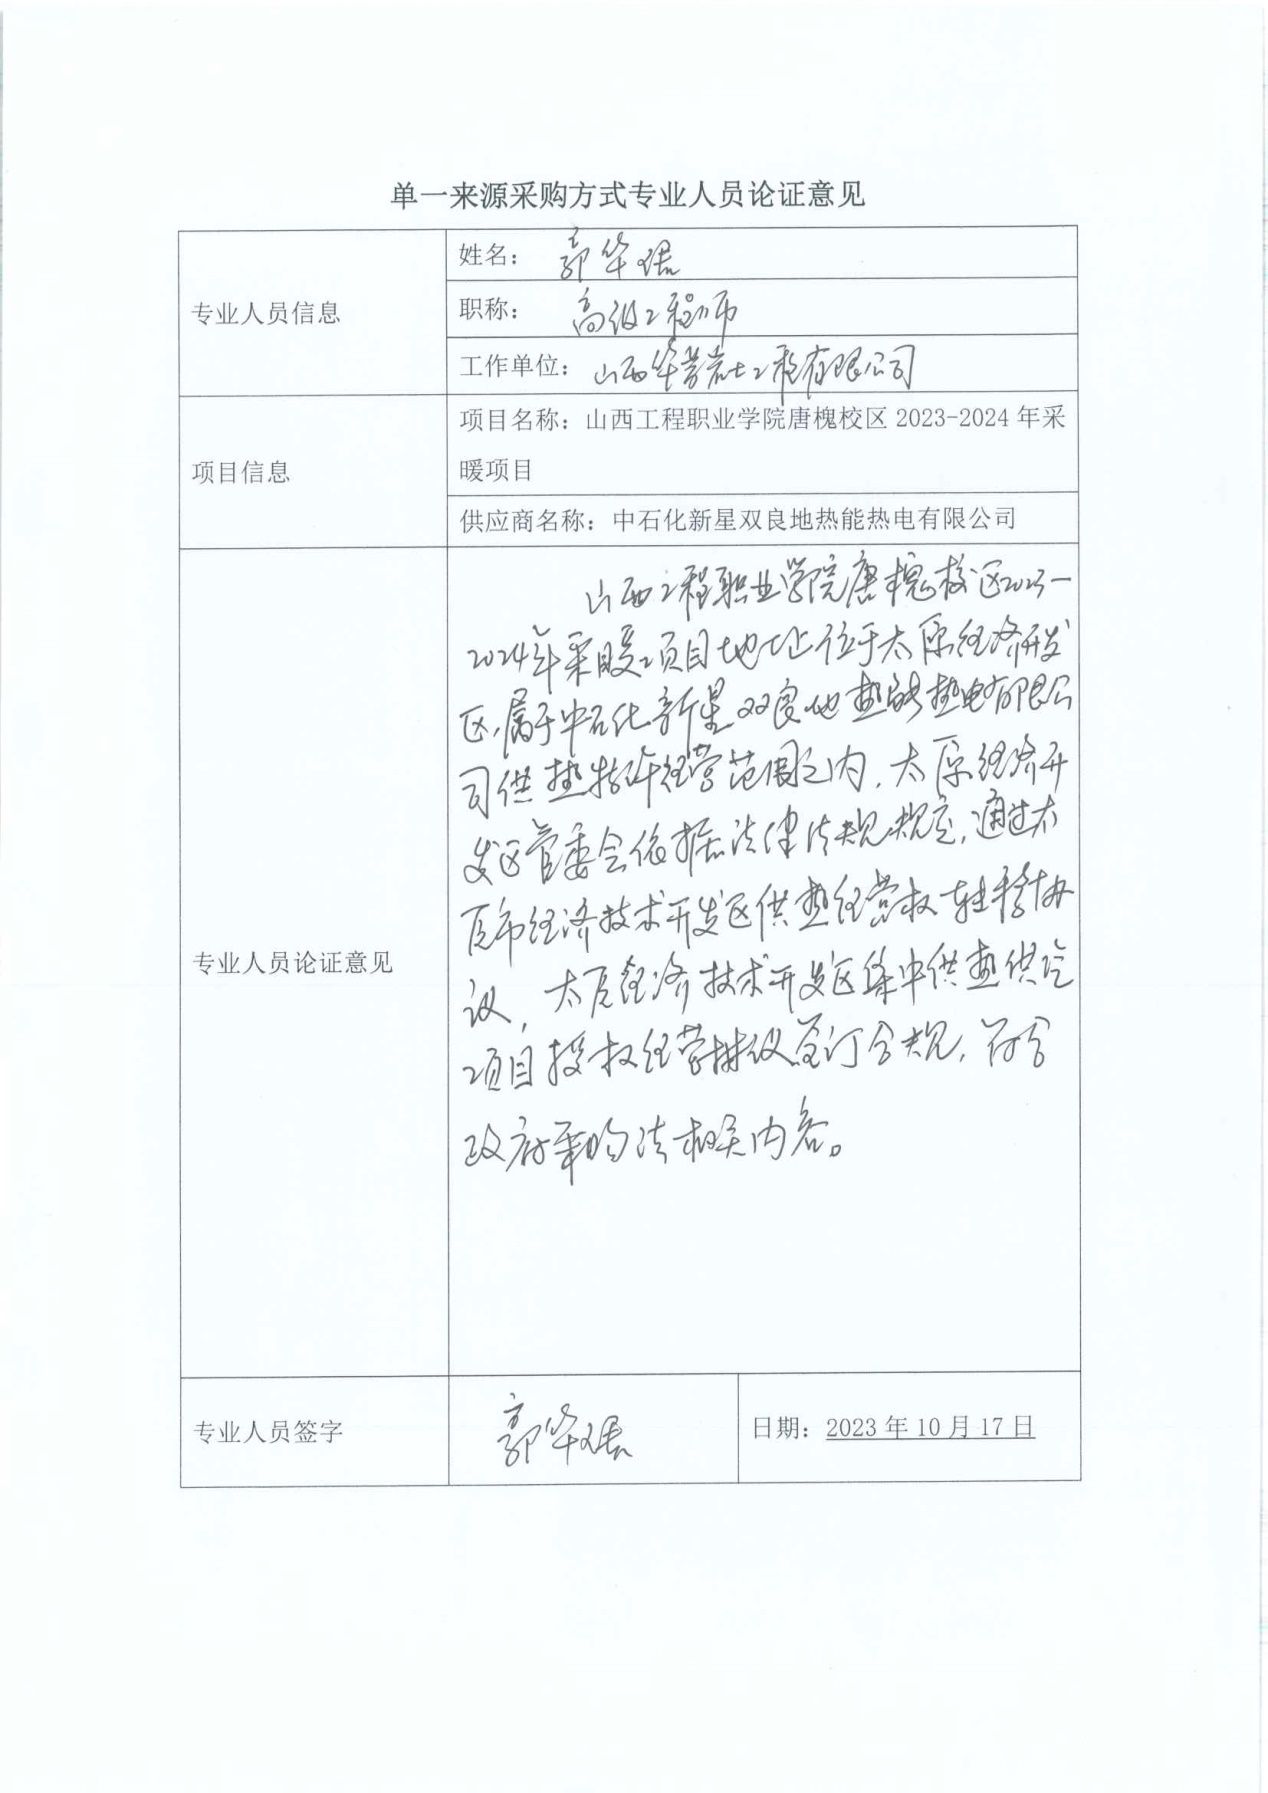 单一来源采购方式专业人员论证意见
专业人员信息
姓名：郭华珺
职称：高级工程师
工作单位：山西华晋岩土工程有限公司
项目信息
项目名称：山西工程职业学院唐槐校区 2023-2024 年采
暖项目
供应商名称：中石化新星双良地热能热电有限公司
专业人员论证意见
山西工程职业学院唐槐校区2023-
2024年采暖项目地址位于太原经济开发
区，属于中石化新星双良地热能热电有限公
司供热特许经营范围之内，太原经济开
发区管委会依据法律法规规定，通过太
原市经济技术开发区供热经营权转移协
议，太原经济技术开发区集中供热供汽
项目授权经营协议签订合规，符合
政府采购法相关内容。
专业人员签字
郭华珺
日期：2023 年 10 月 17 日